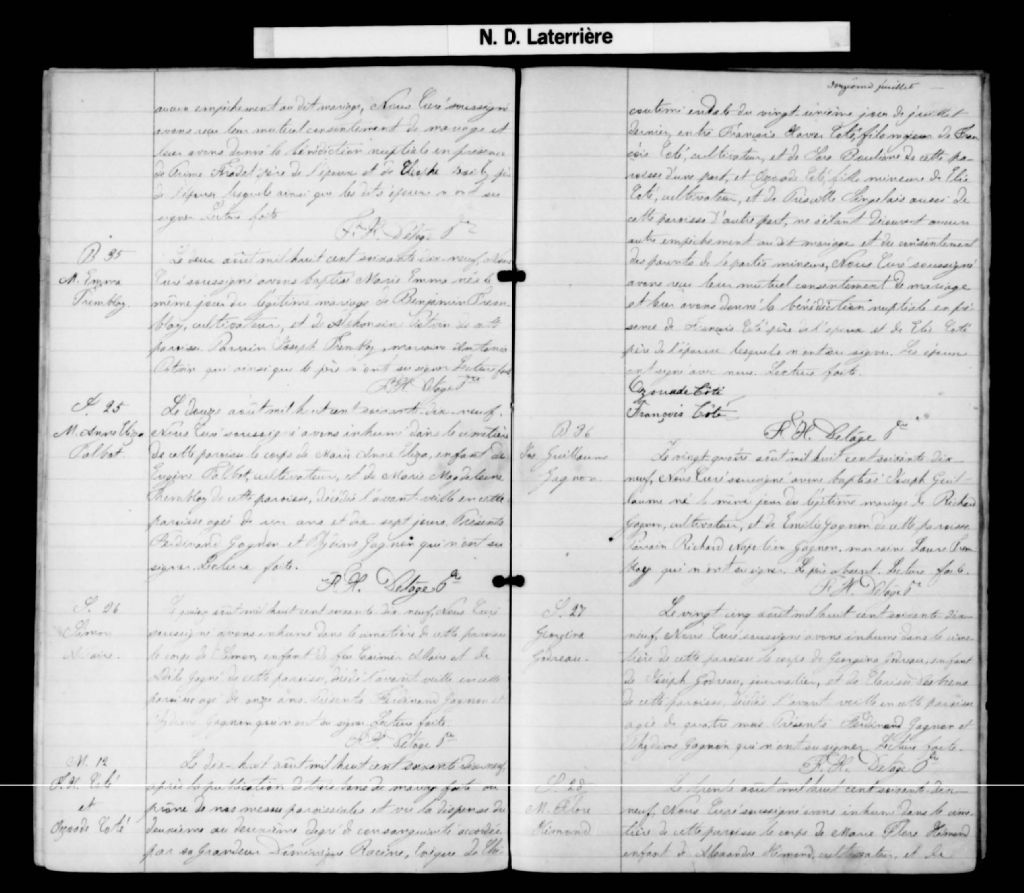 N. D. Laterrière
aucun empêchement au dit mariage, Nous Curé soussigné
avons reçu leur mutuel consentement de mariage et
leur avons donné la bénédiction nuptiale en présence
de père de l'époux et de
de l'épouse lesquels ainsi que les dits époux n'ont su
signer. Lecture faite.
F. H. Delage Ptre
B 35
M. Emma
Tremblay.
Le deux août mil huit cent soixante dix-neuf, Nous
Curé soussigné avons baptisé Marie Emma née le
même jour du légitime mariage de Benjamin Trem-
blay, cultivateur, et de Alphonsine de cette
paroisse. Parrain Joseph Tremblay, marraine
qui ainsi que le père n'ont su signer. Lecture faite
F. H. Delage Ptre
S. 25
M. Anne Eliza
Talbot.
Le douze août mil huit cent soixante dix-neuf,
Nous Curé soussigné avons inhumé dans le cimetière
de cette paroisse le corps de Marie Anne Eliza, enfant de
Eugène Talbot, cultivateur, et de Marie Magdeleine
Tremblay de cette paroisse, décédée l'avant-veille en cette
paroisse agée de un ans et dix sept jours. Présents
Ferdinand Gagnon et Gagnon qui n'ont su
signer. Lecture faite.
F. H. Delage Ptre
S. 26
Simon
Allaire.
Le août mil huit cent soixante dix neuf, Nous Curé
soussigné avons inhumé dans le cimetière de cette paroisse
le corps de Simon enfant de feu Casimir Allaire et de
Gagné de cette paroisse, décédé l'avant veille en cette
paroisse agé de onze ans. Présents Ferdinand Gagnon et
Gagnon qui n'ont su signer. Lecture faite.
F. H. Delage Ptre
M. 12
F. X. Coté
et
Ozoade Coté
Le dix-huit août mil huit cent soixante dix-neuf
après la publication de trois bans de mariage faite au
prône de nos messes paroissiales et vu la dispense du
deuxième au deuxième degré de consanguinité accordée
par sa Grandeur Dominique Racine, Evêque de Chi-
onzième juillet
coutimi en date du vingt unième jour de juillet
dernier, entre François Xavier Coté, fils majeur de Fran-
çois Coté, cultivateur, et de Boulianne de cette pa-
roisse d'une part, et Ozoade Coté, fille mineure de Elie
Coté, cultivateur, et de Priscille Langelais aussi de
cette paroisse d'autre part, ne s'étant découvert aucun
autre empêchement au dit mariage et du consentement
des parents de la partie mineure, Nous Curé soussigné
avons reçu leur mutuel consentement de mariage
et leur avons donné la bénédiction nuptiale en pré-
sence de François Coté père de l'époux et de Elie Coté
père de l'épouse lesquels n'ont su signer. Les époux
ont signé avec nous. Lecture faite.
Ozouade Coté
François Coté
F. H. Delage Ptre
B 36
Jos Guillaume
Gagnon.
Le vingt quatre août mil huit cent soixante dix-
neuf, Nous Curé soussigné avons baptisé Joseph Guil-
laume né le même jour du légitime mariage de Richard
Gagnon, cultivateur, et de Emilie Gagnon de cette paroisse.
Parrain Richard Napoléon Gagnon, marraine Laure Trem-
blay qui n'ont su signer. Le père absent. Lecture faite.
F. H. Delage Ptre
S. 27
Georgina
Godreau.
Le vingt cinq août mil huit cent soixante dix-
neuf, Nous Curé soussigné avons inhumé dans le cime-
tière de cette paroisse le corps de Georgina Godreau, enfant
de Joseph Godreau, journalier, et de
de cette paroisse, décédée l'avant veille en cette paroisse
agée de quatre mois. Présents Ferdinand Gagnon et
Gagnon qui n'ont su signer. Lecture faite.
F. H. Delage Ptre
S. 28
M. Flore
Hémond
Le trente août mil huit cent soixante dix-
neuf, Nous Curé soussigné avons inhumé dans le cime-
tière de cette paroisse le corps de Marie Flore Hémond
enfant de Alexandre Hémond, cultivateur, et de